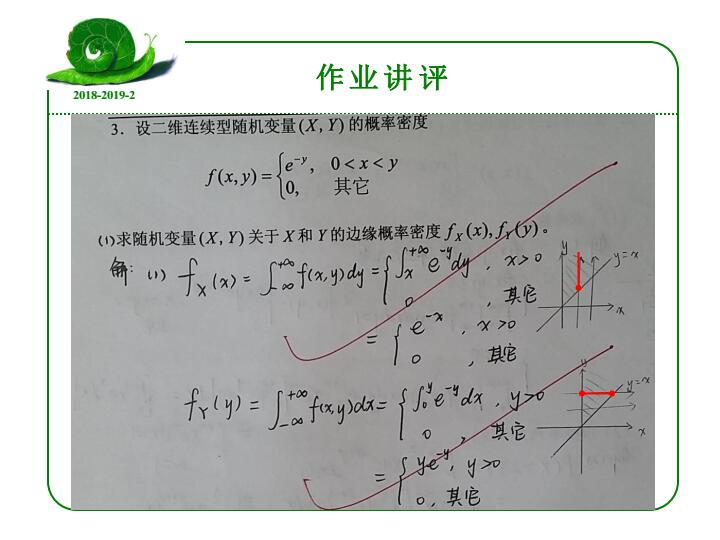 作业讲评
2018-2019-2
3. 设二维连续型随机变量(X, Y)的概率密度
f(x, y) = { e^{-y}, 0 < x < y
0, 其它
(1)求随机变量(X, Y)关于X和Y的边缘概率密度 f_X(x), f_Y(y)。
解: (1) f_X(x) = ∫_{-∞}^{+∞} f(x,y)dy = { ∫_x^{+∞} e^{-y}dy , x>0
0 , 其它
y
y=x
x
= { e^{-x} , x>0
0 , 其它
f_Y(y) = ∫_{-∞}^{+∞} f(x,y)dx = { ∫_0^y e^{-y}dx , y>0
0 , 其它
y
y=x
x
= { ye^{-y}, y>0
0, 其它